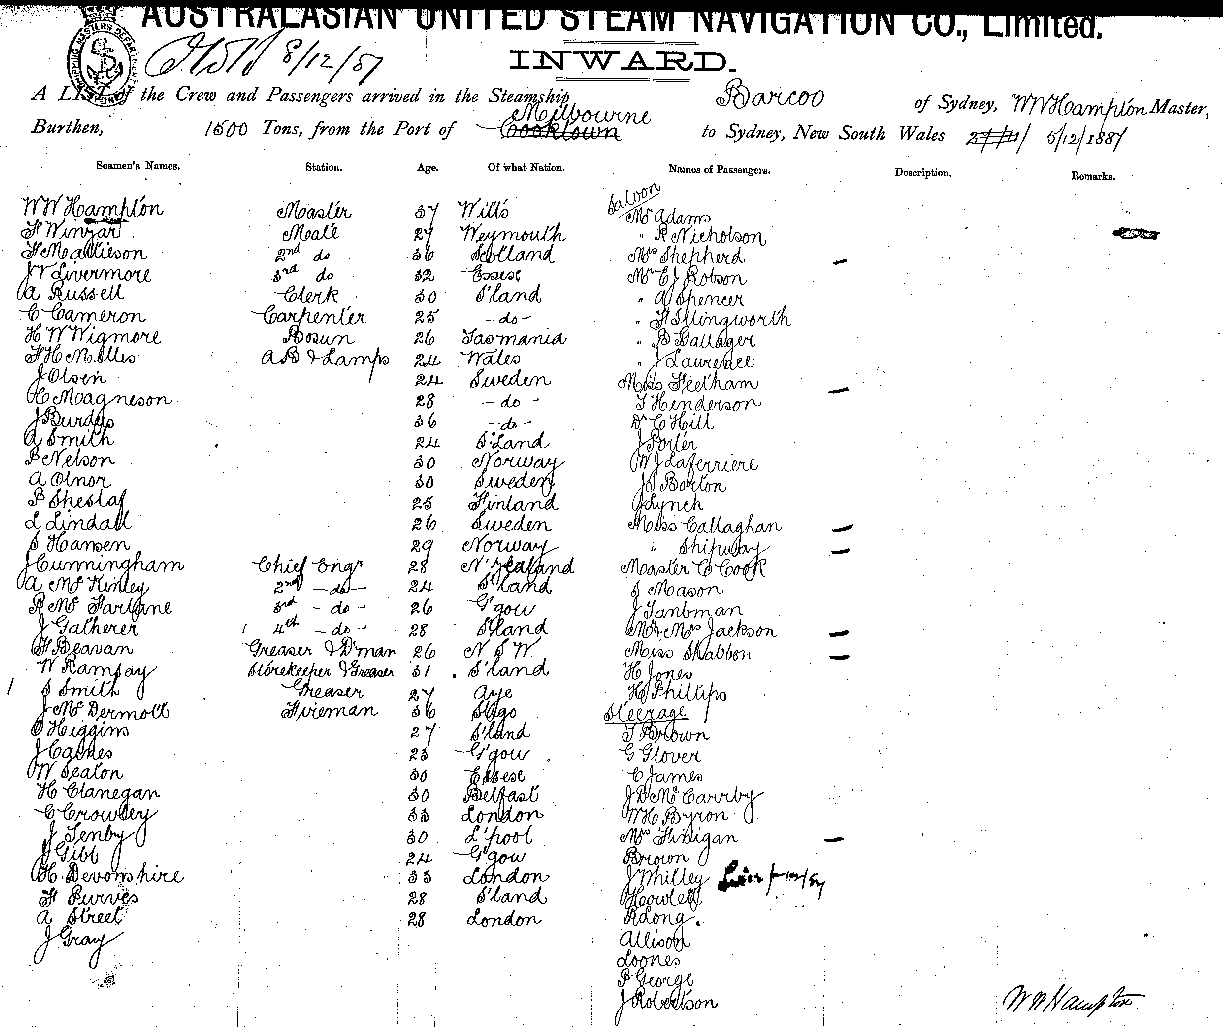 AUSTRALASIAN UNITED STEAM NAVIGATION CO., Limited.
8/12/87
INWARD.
A LIST of the Crew and Passengers arrived in the Steamship Barcoo of Sydney, WW Hampton Master,
Melbourne
Burthen, 1500 Tons, from the Port of Cooktown to Sydney, New South Wales 5/12/1887
Seamen's Names. Station. Age. Of what Nation. Names of Passengers. Description. Remarks.
Saloon
WW Hampton Master 37 Wilts Mr Adams
F Winzar Mate 27 Weymouth " R Nicholson
F Mathieson 2nd do 36 Scotland Mrs Shepherd
J V Livermore 3rd do 32 Essex Mr C J Robson
A Russell Clerk 30 S'land " A Spencer
C Cameron Carpenter 25 - do - " F Illingworth
H W Wigmore Bosun 26 Tasmania " B Gallager
F H Melles AB & Lamps 24 Wales " J Lawrence
J Olsen 24 Sweden Miss Feetham
H Magneson 28 - do - T Henderson
J Burdys 36 - do - Dr C Hill
A Smith 24 S'Land J Porter
P Nelson 30 Norway W J Laferriere
A Olnor 30 Sweden J S Barton
P Sheslaf 25 Finland J Lynch
L Lindall 26 Sweden Miss Callaghan
S Hansen 29 Norway " Shipway
J Cunningham Chief Engr 28 N'Zealand Master C Cook
A McKinley 2nd - do - 24 S'land S Mason
R McFarlane 3rd - do - 26 G'gow J Tantman
J Gatherer 4th - do - 28 S'land Mr & Mrs Jackson
F Beavan Greaser & D'man 26 N S W. Miss Shabbon
W Ramsay Storekeeper & Greaser 31 S'land H Jones
S Smith Greaser 27 Aye H Phillips
J McDermott Fireman 36 Sligo Steerage
O Higgins 27 S'land T Brown
J Eames 23 G'gow G Glover
W Seaton 30 Essex C James
H Clanegan 30 Belfast J D McCarrby
C Crowley 33 London W H Byron
J Tenby 30 L'pool Mrs Finigan
J Gibb 24 G'gow Brown
H Devonshire 33 London J Milley
F Purves 28 S'land Howlett
A Street 28 London R Long.
J Gray Allison
Loones
P George
J Robertson
W W Hampton